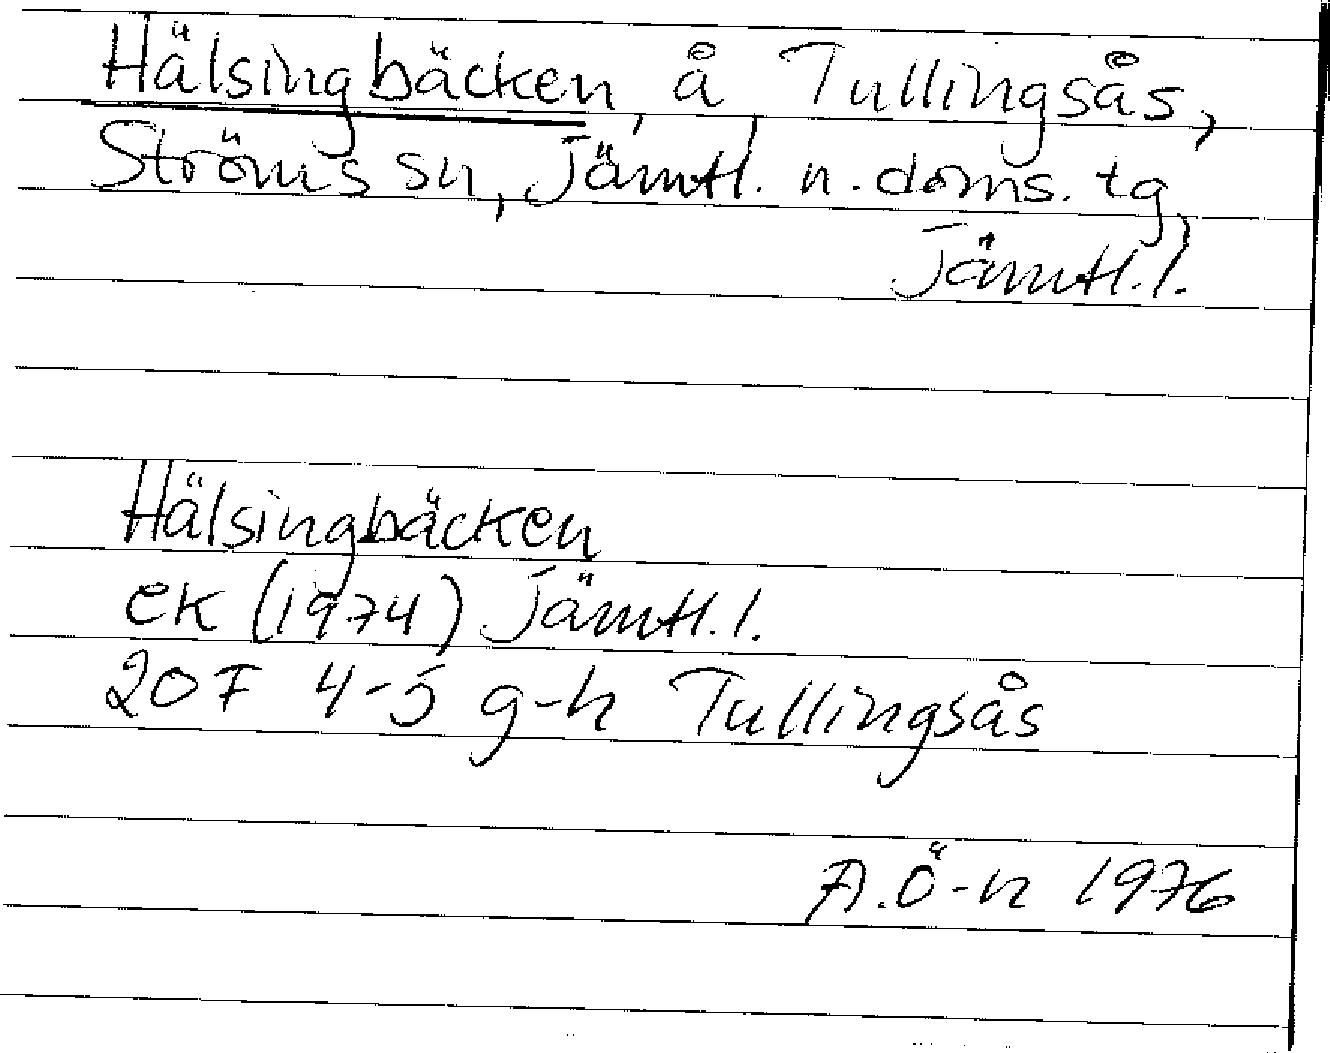 Hälsingbäcken, å Tullingsås,
Ströms sn, Jämtl. n. doms. tg,
Jämtl. l.
Hälsingbäcken
ek (1974) Jämtl. l.
20F 4-5 g-h Tullingsås
A.Ö-n 1976